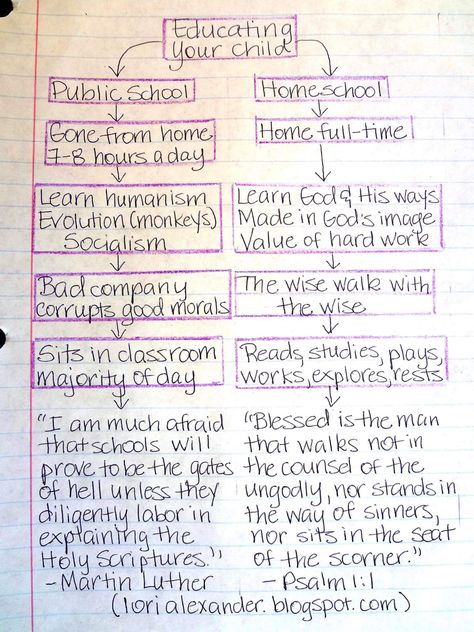 Educating
your child
Public School
Homeschool
Gone from home
7-8 hours a day
Home full-time
Learn humanism
Evolution (monkeys)
Socialism
Learn God & His ways
Made in God's image
Value of hard work
Bad company
corrupts good morals
The wise walk with
the wise
Sits in classroom
majority of day
Reads, studies, plays,
works, explores, rests
"I am much afraid
that schools will
prove to be the gates
of hell unless they
diligently labor in
explaining the
Holy Scriptures."
-Martin Luther
"Blessed is the man
that walks not in
the counsel of the
ungodly, nor stands in
the way of sinners,
nor sits in the seat
of the scorner."
-Psalm 1:1
(lorialexander.blogspot.com)